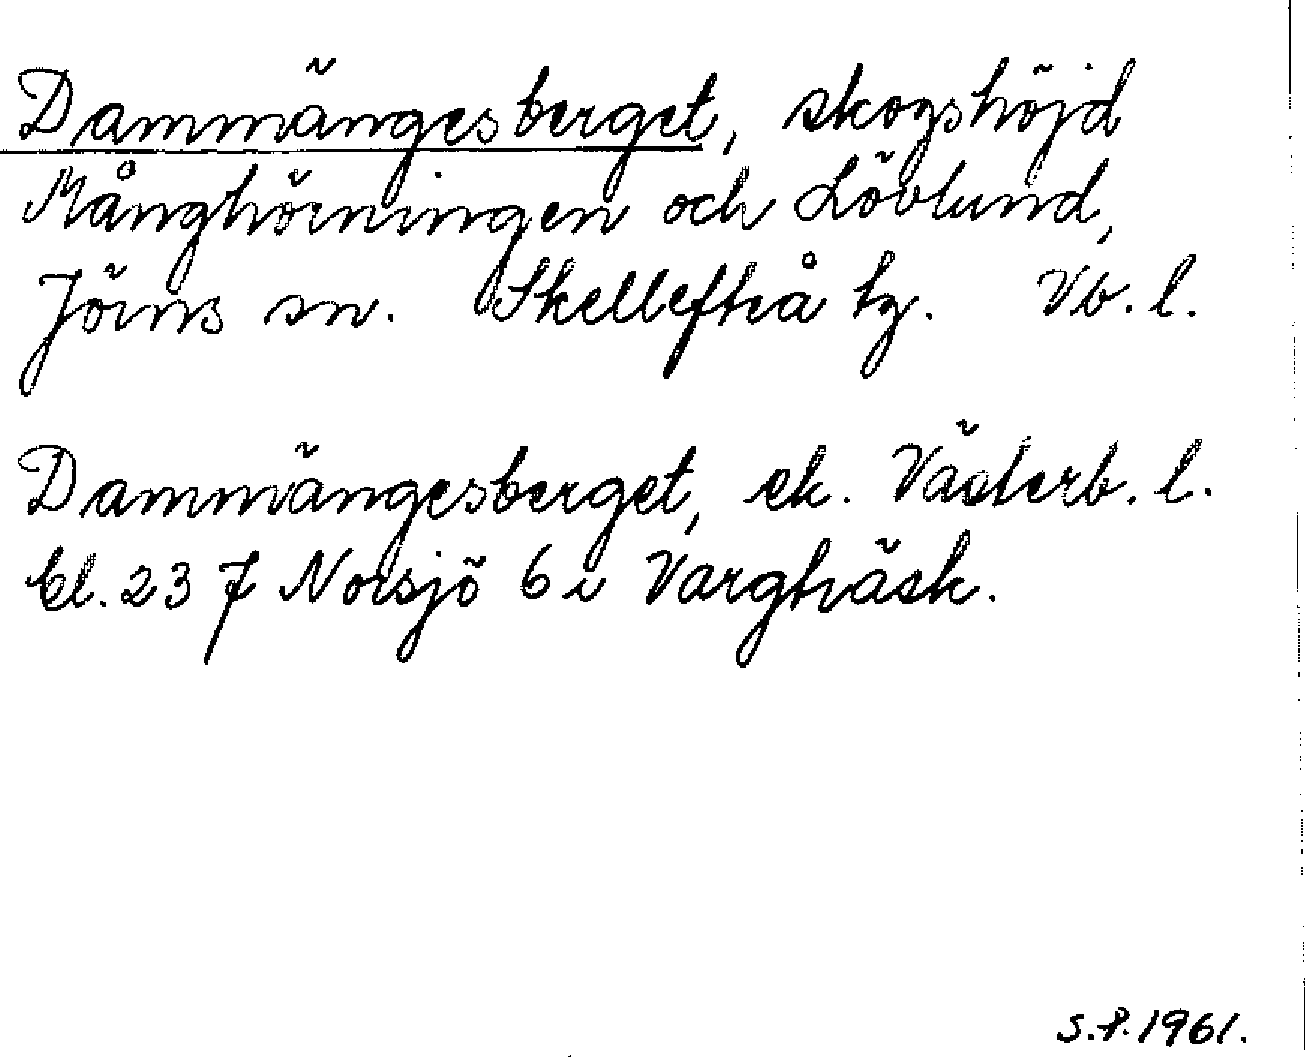 Dammängesberget, skogshöjd
Månghörningen och Lövlund,
Jörns sn. Skellefteå tg. Vb. l.
Dammängesberget, ek. Västerb. l.
bl. 23 J Norsjö 6 i Vargträsk.
S.P. 1961.